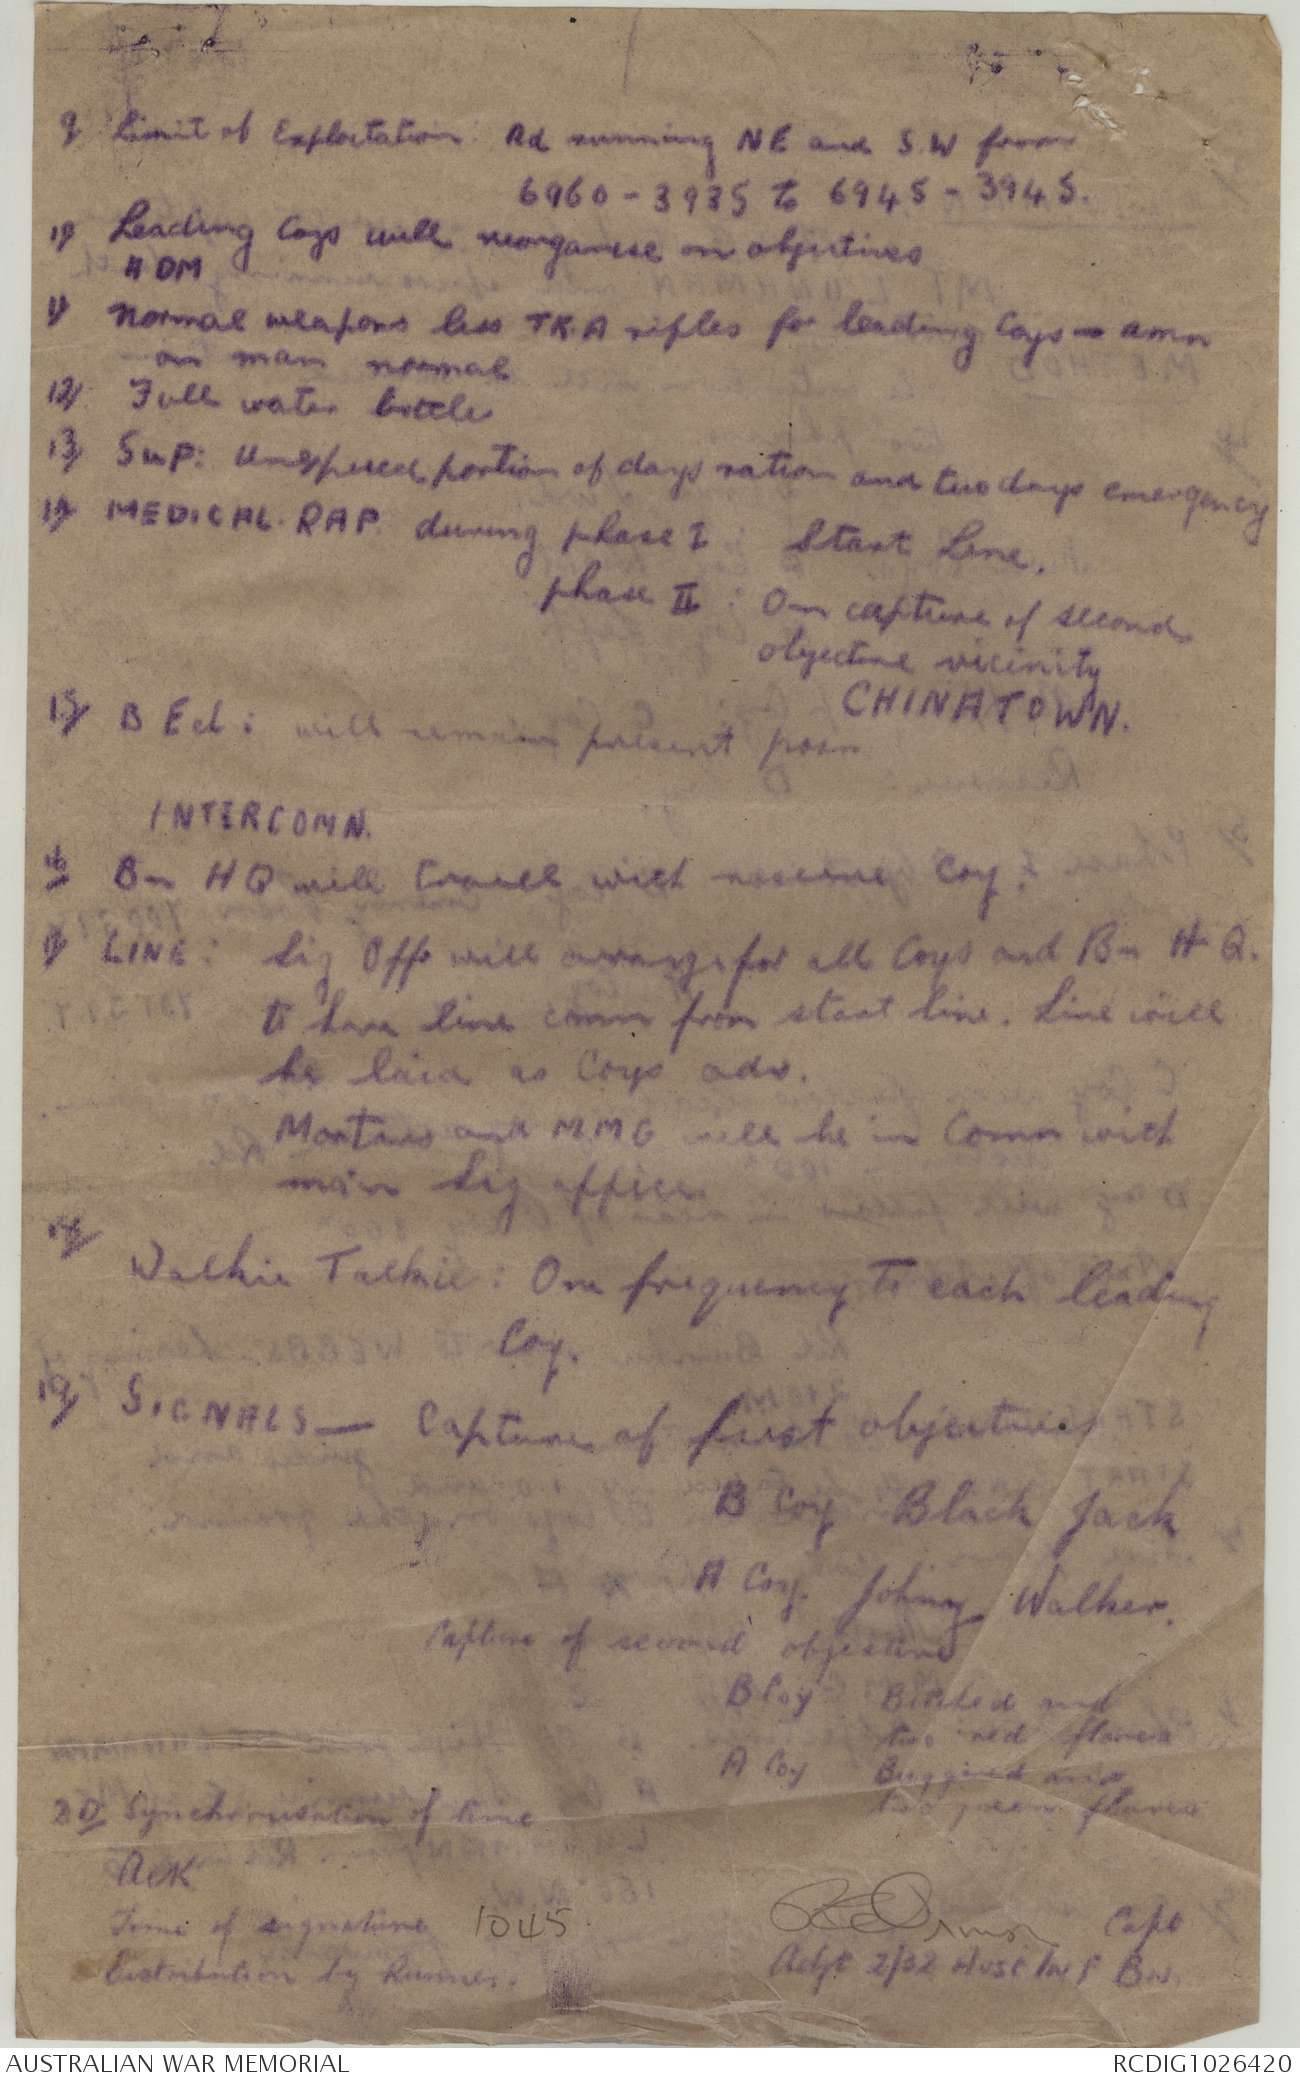 9/ Limit of Exploitation: Rd running NE and S.W from
6960 - 3935 to 6945 - 3945.
10/ Leading Coys will reorganise on objectives
ADM
11/ Normal weapons less TKA rifles for leading Coys - amn
on man normal
12/ Full water bottle
13/ Sup: Unexpired portion of days ration and two days emergency
14/ MEDICAL. RAP during phase I: Start Line.
phase II: On capture of second
objective vicinity
CHINATOWN.
15/ B Ech: will remain present posn
INTERCOMN.
16/ Bn HQ will travel with reserve Coy.
17/ LINE: Sig Offr will arrange for all Coys and Bn HQ.
to have line comn from start line. Line will
be laid as Coys adv.
Mortars and MMG will be in Comn with
main Sig office
18/
Walkie Talkie: One frequency to each leading
Coy.
19/ SIGNALS - Capture of first objective
B Coy Black Jack
A Coy. Johny Walker.
Capture of second objective
B Coy Bitched and
two red flares
A Coy Buggered and
two green flares
20/ Synchronisation of time
ACK
Time of signature 1045
Distribution by Runner. Capt
Adjt 2/32 Aust Inf Bn.
AUSTRALIAN WAR MEMORIAL RCDIG1026420